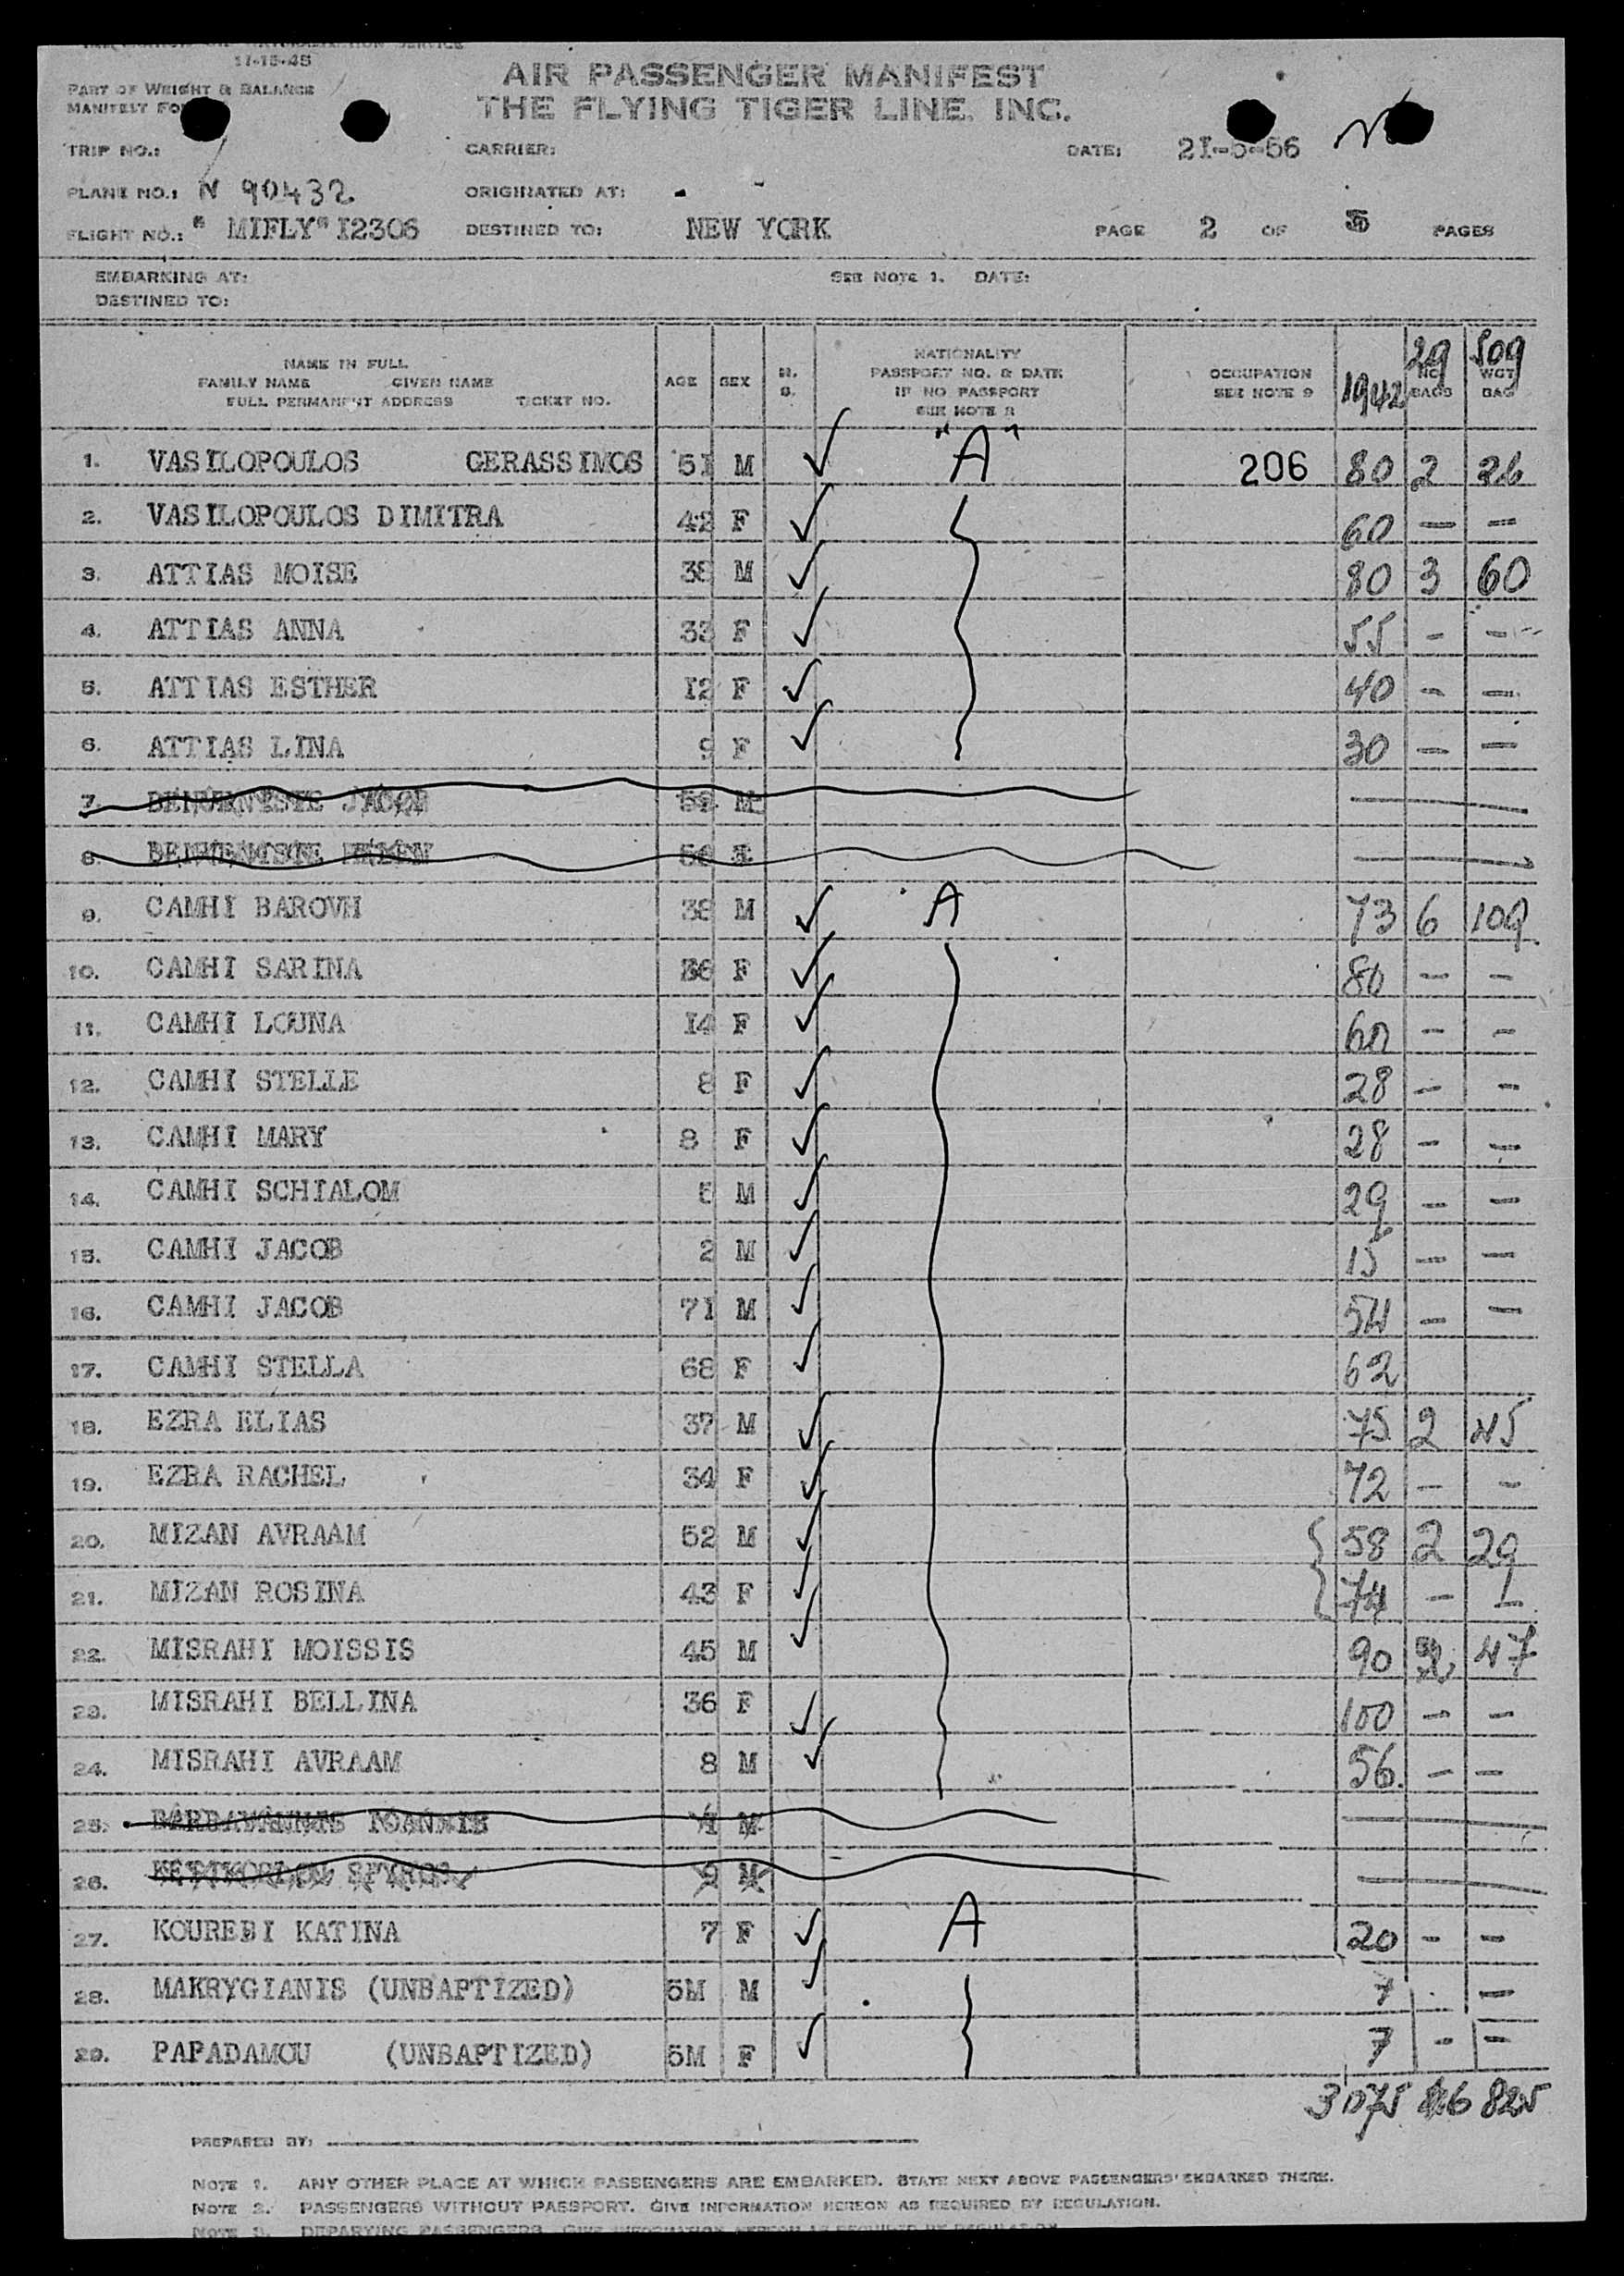 11-15-45
PART OF WEIGHT & BALANCE
MANIFEST
AIR PASSENGER MANIFEST
THE FLYING TIGER LINE. INC.
TRIP NO.:
CARRIER:
DATE: 21-5-56
PLANE NO.: N 90432
ORIGINATED AT: -
FLIGHT NO.: "MIFLY" I2306
DESTINED TO: NEW YORK
PAGE 2 OF 5 PAGES
EMBARKING AT:
SEE NOTE 1. DATE:
DESTINED TO:
NAME IN FULL
FAMILY NAME GIVEN NAME
FULL PERMANENT ADDRESS TICKET NO.
AGE SEX M. S.
NATIONALITY
PASSPORT NO. & DATE
IF NO PASSPORT
SEE NOTE 2
OCCUPATION
SEE NOTE 3
1942
29 509
NO. BAGS
WGT. BAG
1. VASILOPOULOS GERASSIMOS 5I M ✓ "A" 206 80 2 26
2. VASILOPOULOS DIMITRA 42 F ✓ 60 — —
3. ATTIAS MOISE 38 M ✓ 80 3 60
4. ATTIAS ANNA 33 F ✓ 55 - -
5. ATTIAS ESTHER I2 F ✓ 40 - —
6. ATTIAS LINA 9 F ✓ 30 — —
7.
8.
9. CAMHI BAROVH 38 M ✓ A 73 6 109
10. CAMHI SARINA 36 F ✓ 80 — -
11. CAMHI LOUNA I4 F ✓ 60 - -
12. CAMHI STELLE 8 F ✓ 28 - -
13. CAMHI MARY 8 F ✓ 28 - -
14. CAMHI SCHIALOM 5 M ✓ 29 - —
15. CAMHI JACOB 2 M ✓ 15 — —
16. CAMHI JACOB 7I M ✓ 54 — —
17. CAMHI STELLA 68 F ✓ 62
18. EZRA ELIAS 37 M ✓ 75 2 45
19. EZRA RACHEL 34 F ✓ 72 - -
20. MIZAN AVRAAM 52 M ✓ 58 2 29
21. MIZAN ROSINA 43 F ✓ 74 -
22. MISRAHI MOISSIS 45 M ✓ 90 47
23. MISRAHI BELLINA 36 F ✓ 100 - -
24. MISRAHI AVRAAM 8 M ✓ 56. — —
25.
26.
27. KOUREBI KATINA 7 F ✓ A 20 - -
28. MAKRYGIANIS (UNBAPTIZED) 5M M ✓ 7 —
29. PAPADAMOU (UNBAPTIZED) 5M F ✓ 7 - -
825
PREPARED BY:
NOTE 1. ANY OTHER PLACE AT WHICH PASSENGERS ARE EMBARKED. STATE NEXT ABOVE PASSENGERS' EMBARKED THERE.
NOTE 2. PASSENGERS WITHOUT PASSPORT. GIVE INFORMATION HEREON AS REQUIRED BY REGULATION.
NOTE 3. DEPARTING PASSENGERS. GIVE INFORMATION HEREON AS REQUIRED BY REGULATION